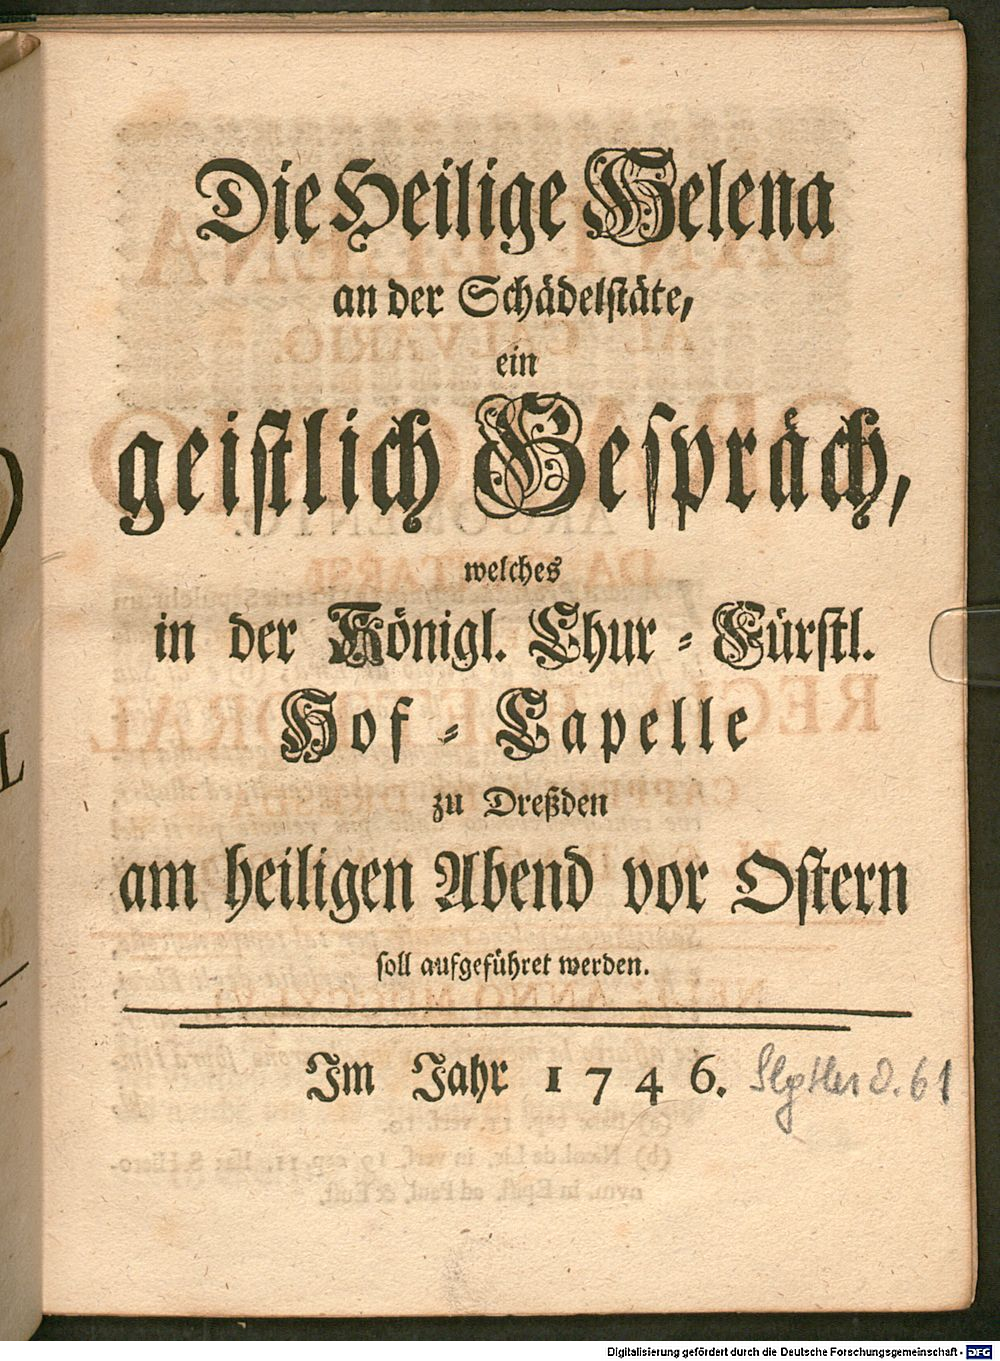 Die Heilige Helena
an der Schädelstäte,
ein
geistlich Gespräch,
welches
in der Königl. Chur-Fürstl.
Hof-Capelle
zu Dreßden
am heiligen Abend vor Ostern
soll aufgeführet werden.
Im Jahr 1746.
Digitalisierung gefördert durch die Deutsche Forschungsgemeinschaft - DFG